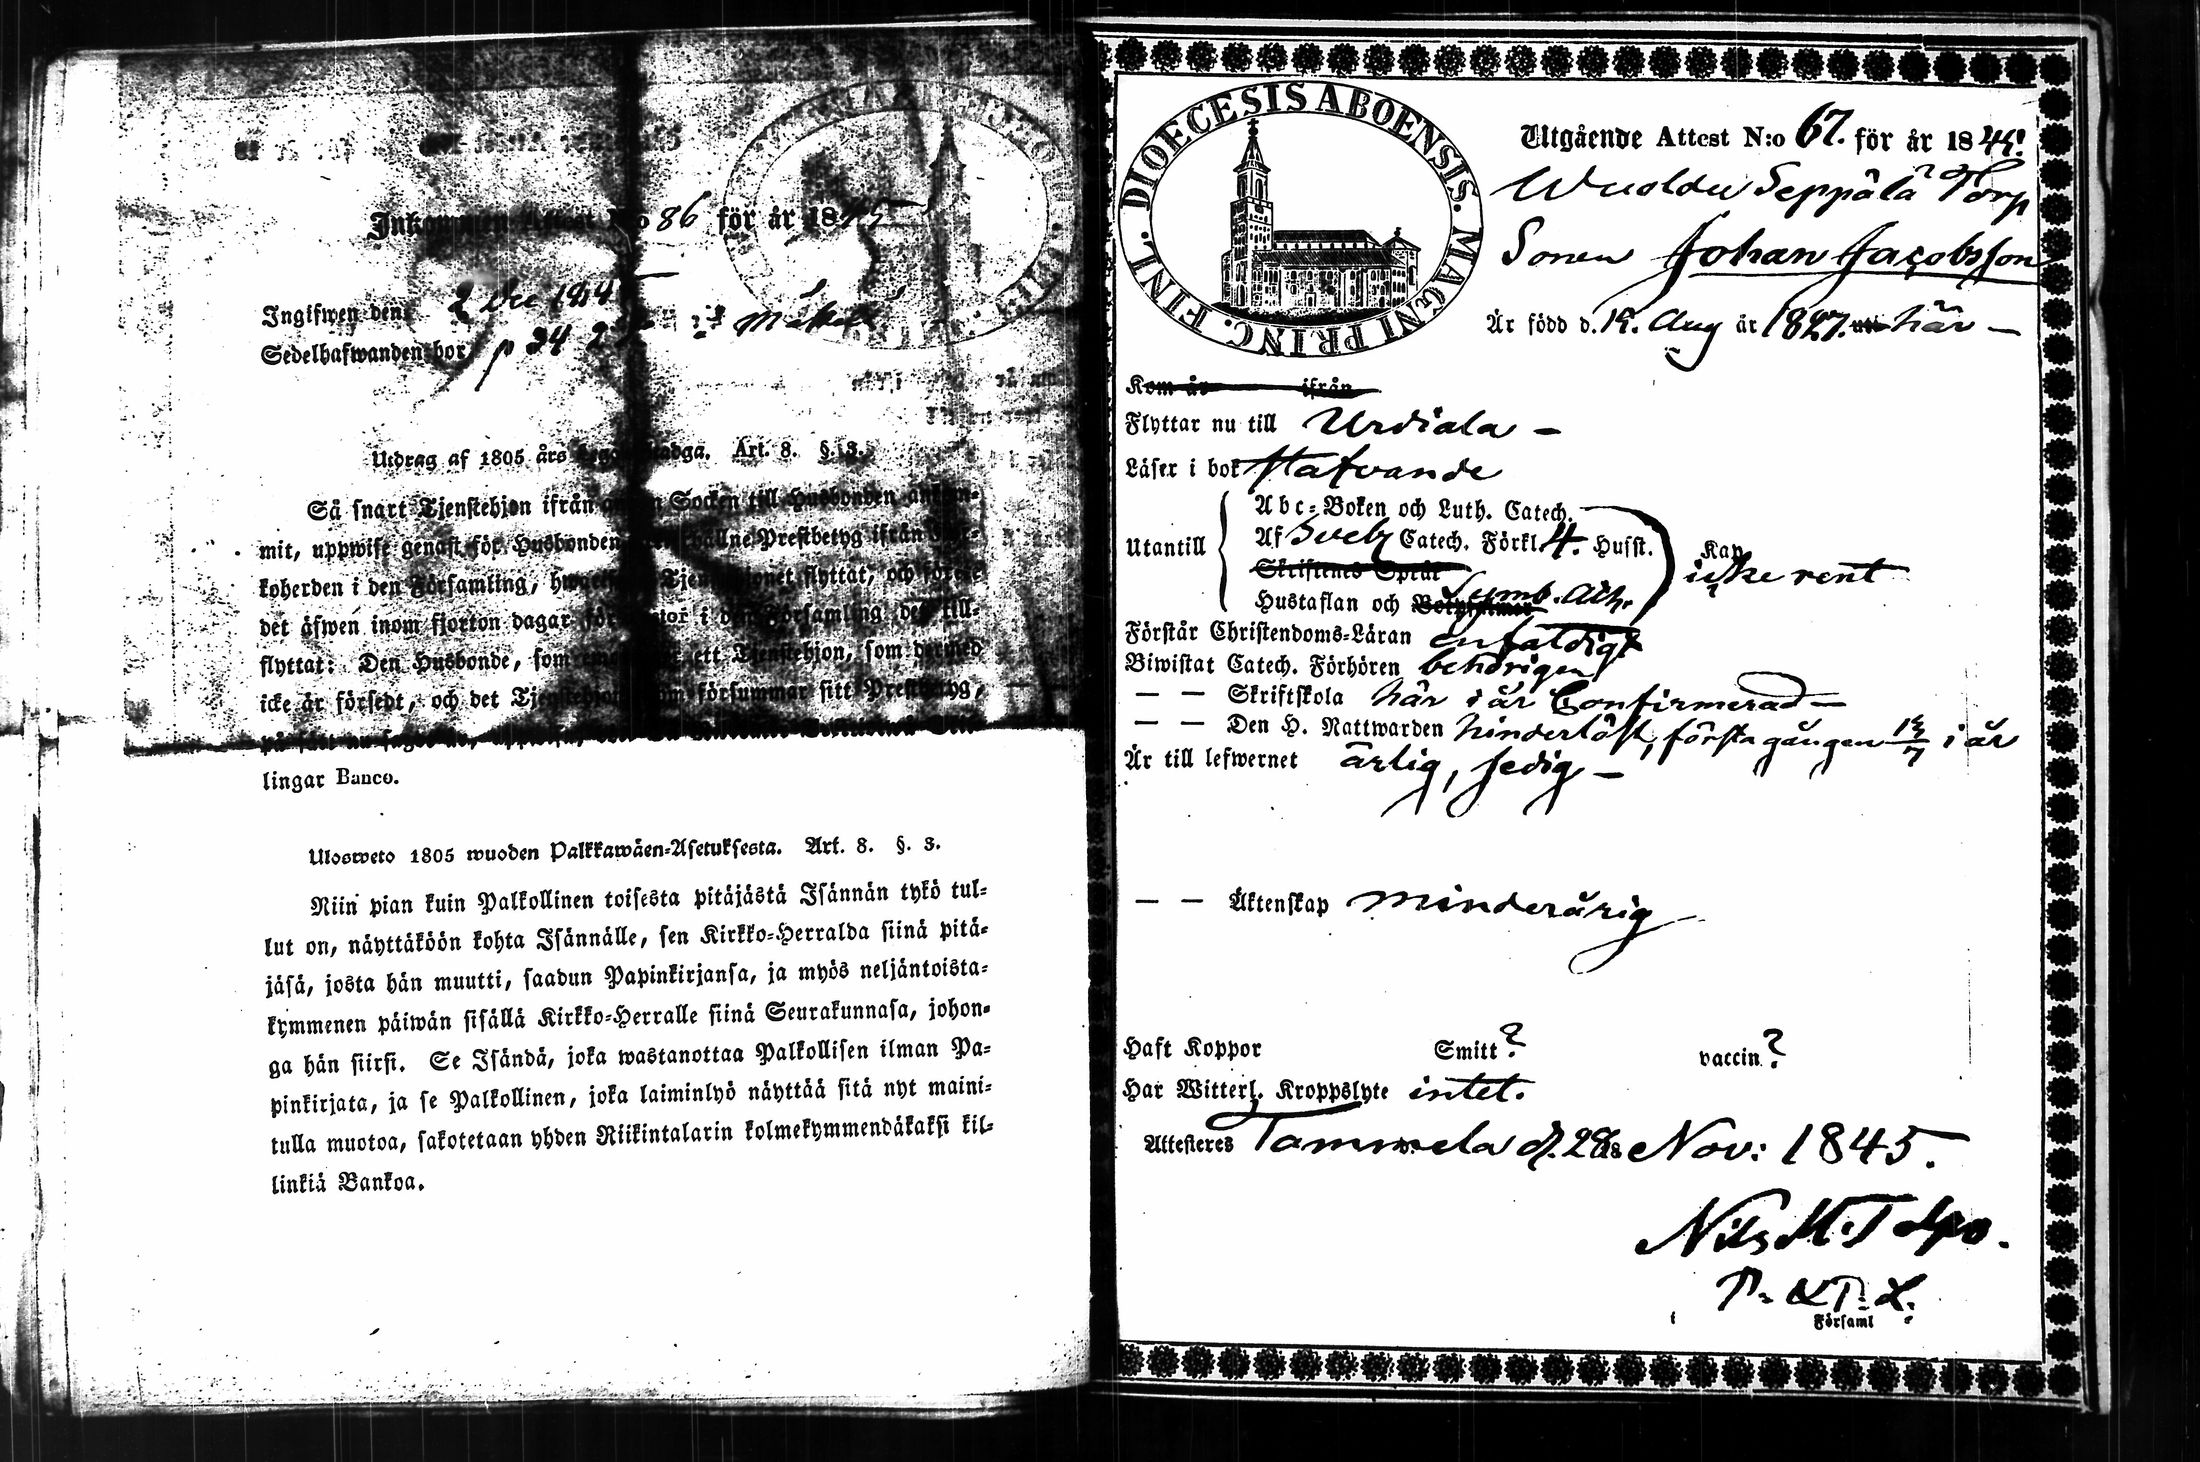 Inkommen Attest N:o 86 för år 1845
Ingifwen den 2 Dec 1845
Sedelhafwanden bor p 34
Utdrag af 1805 års Legostadga. Art. 8. §. 3.
Så snart Tjenstehjon ifrån annan Socken till Husbonden ankom-
mit, uppwise genast för Husbonden Prestbetyg ifrån
koherden i den Församling, flyttat, och
det äfwen inom fjorton dagar för i den Församling det till-
flyttat: Den Husbonde, som ett Tjenstehjon, som dermed
icke är försedt, och det Tjenstehjon som försummar sitt Prestbetyg,
lingar Banco.
Ulosweto 1805 wuoden Palkkawäen-Asetuksesta. Art. 8. §. 3.
Niin pian kuin Palkollinen toisesta pitäjästä Isännän tykö tul-
lut on, näyttäköön kohta Isännälle, sen Kirkko-Herralda siinä pitä-
jäsä, josta hän muutti, saadun Papinkirjansa, ja myös neljäntoista-
kymmenen päiwän sisällä Kirkko-Herralle siinä Seurakunnasa, johon-
ga hän siirsi. Se Isändä, joka wastanottaa Palkollisen ilman Pa-
pinkirjata, ja se Palkollinen, joka laiminlyö näyttää sitä nyt maini-
tulla muotoa, sakotetaan yhden Riikintalarin kolmekymmendäkaksi kil-
linkiä Bankoa.
DIOECESIS ABOENSIS. MAGNI PRINC. FINL.
Utgående Attest N:o 67. för år 1845.
Seppälä Torp
Sonen Johan Jacobsson
Är född d. Aug år 1827. här —
Kom år ifrån
Flyttar nu till Urdiala —
Läser i bok stafvande
Abc-Boken och Luth. Catech.
Utantill Af Sveb Catech. Förkl. 4. Husst. Kap
Skriftenes Språk icke rent
Hustaflan och Symb. Ath.
Förstår Christendoms-Läran enfaldigt
Biwistat Catech. Förhören behörigen
— — Skriftskola här i år Confirmerad —
— — Den H. Nattwarden hinderlöst, första gången i år
Är till lefwernet ärlig, sedig —
— — Äktenskap minderårig
Haft Koppor Smitt ? vaccin ?
Har Witterl. Kroppslyte intet.
Attesteres Tammela d. 28 Nov: 1845.
Nils M. Tolpo.
Församl